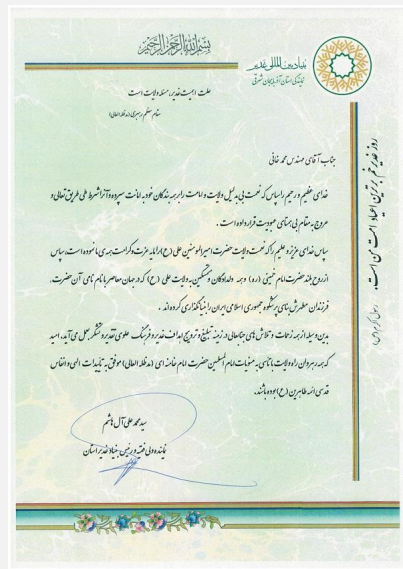 بسم الله الرحمن الرحیم
بنیاد بین المللی غدیر
نمایندگی استان آذربایجان شرقی
علت اهمیت غدیر، مسئله ولایت است
مقام معظم رهبری (مدظله العالی)
جناب آقای مهندس محمد خانی
خدای عظیم و رحیم را سپاس که نعمت بی بدلیل ولایت و امامت را بر همه بندگان خود به امانت سپرده و آنرا شرط طی طریق تعالی و
عروج به مقام بی همتای عبودیت قرار داده است.
سپاس خدای عزیز و علیم را که نعمت ولایت حضرت امیرالمومنین علی (ع) را مایه عزت و کرامت همه ی ما نموده است، سپاس
از روح بلند حضرت امام خمینی (ره) و همه دلدادگان و متمسکین به ولایت علی (ع) که در جهان معاصر با نام نامی آن حضرت،
فرزندان مطهرش بنای پرشکوه جمهوری اسلامی ایران را بنیانگذاری کرده اند.
بدین وسیله از همه زحمات و تلاش های جنابعالی در زمینه تبلیغ و ترویج اهداف غدیر و فرهنگ علوی تقدیر و تشکر بعمل می آید، امید
که همه رهروان راه ولایت با تاسی به منویات امام المسلمین حضرت امام خامنه ای (مدظله العالی) موفق به تاییدات الهی و انفاس
قدسی ائمه طاهرین (ع) بوده باشند.
سید محمد علی آل هاشم
نماینده ولی فقیه و رئیس بنیاد غدیر استان
روز غدیر خم برترین اعیاد امت من است.
رسول اکرم (ص)